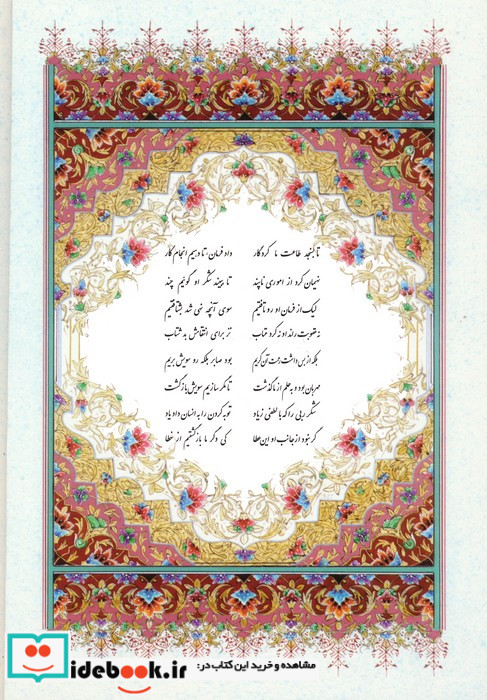 تا بسنجد طاعت ما کردگار داد فرمان، تا دهیم انجام کار
نهیمان کرد از اموری ناپسند تا ببیند شکر او گوئیم چند
لیک از فرمان او رو تافتیم سوی آنچه نهی شد بشتافتیم
نه عقوبت راند او نه کرد عتاب نز برای انتقامش بد شتاب
بلکه از بس داشت رحمت آن کریم بود صابر بلکه رو سویش بریم
مهربان بود و به حلم از ما گذشت تا مگر سازیم سویش بازگشت
شکر ربی را که با لطفی زیاد توبه کردن را به انسان داد یاد
گر نبود از جانب او این عطا کی دگر ما بازگشتیم از خطا
idebook.ir
مشاهده و خرید این کتاب در: